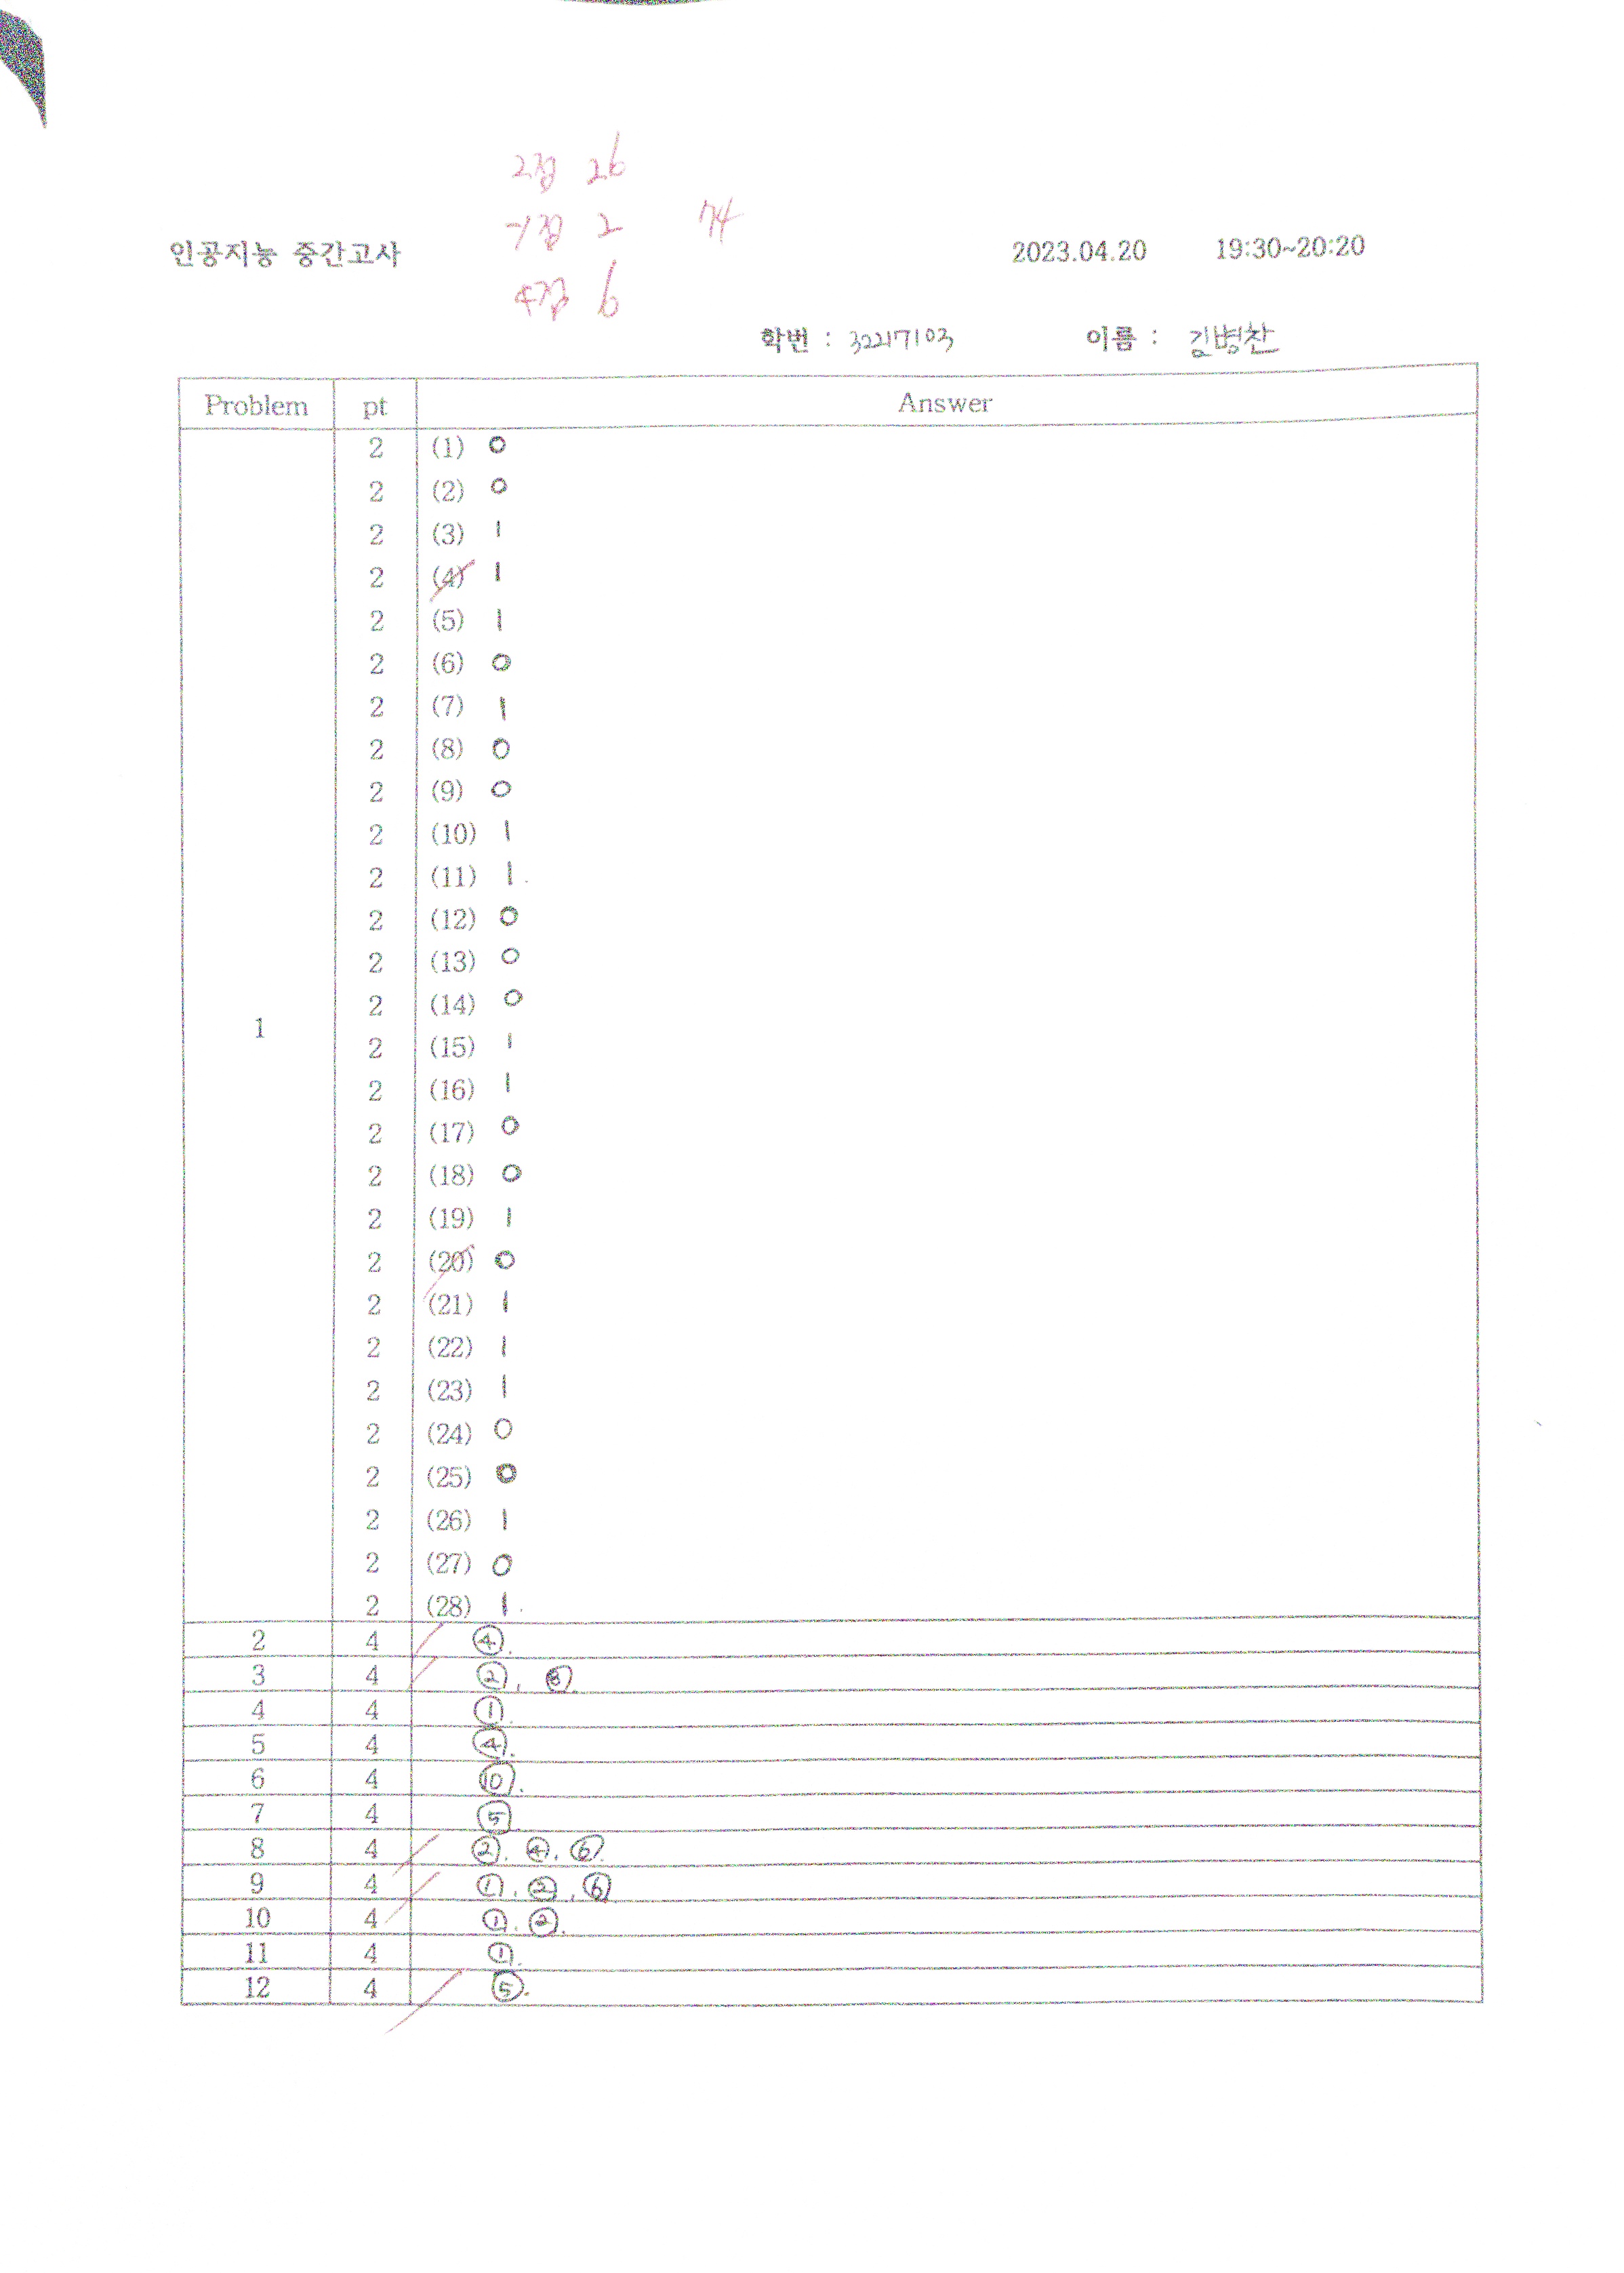 2점 26
-1점 2 74
인공지능 중간고사 2023.04.20 19:30~20:20
4점 6
학번 : 32217103 이름 : 김병찬
Problem pt Answer
2 (1) 0
2 (2) 0
2 (3) 1
2 (4) 1
2 (5) 1
2 (6) 0
2 (7) 1
2 (8) 0
2 (9) 0
2 (10) 1
2 (11) 1
2 (12) 0
2 (13) 0
2 (14) 0
1
2 (15) 1
2 (16) 1
2 (17) 0
2 (18) 0
2 (19) 1
2 (20) 0
2 (21) 1
2 (22) 1
2 (23) 1
2 (24) 0
2 (25) 0
2 (26) 1
2 (27) 0
2 (28) 1.
2 4 ④.
3 4 ②, ⑧.
4 4 ①.
5 4 ④.
6 4 ⑩.
7 4 ⑤.
8 4 ②, ④, ⑥.
9 4 ①, ②, ⑥
10 4 ①, ②.
11 4 ①.
12 4 ⑤.